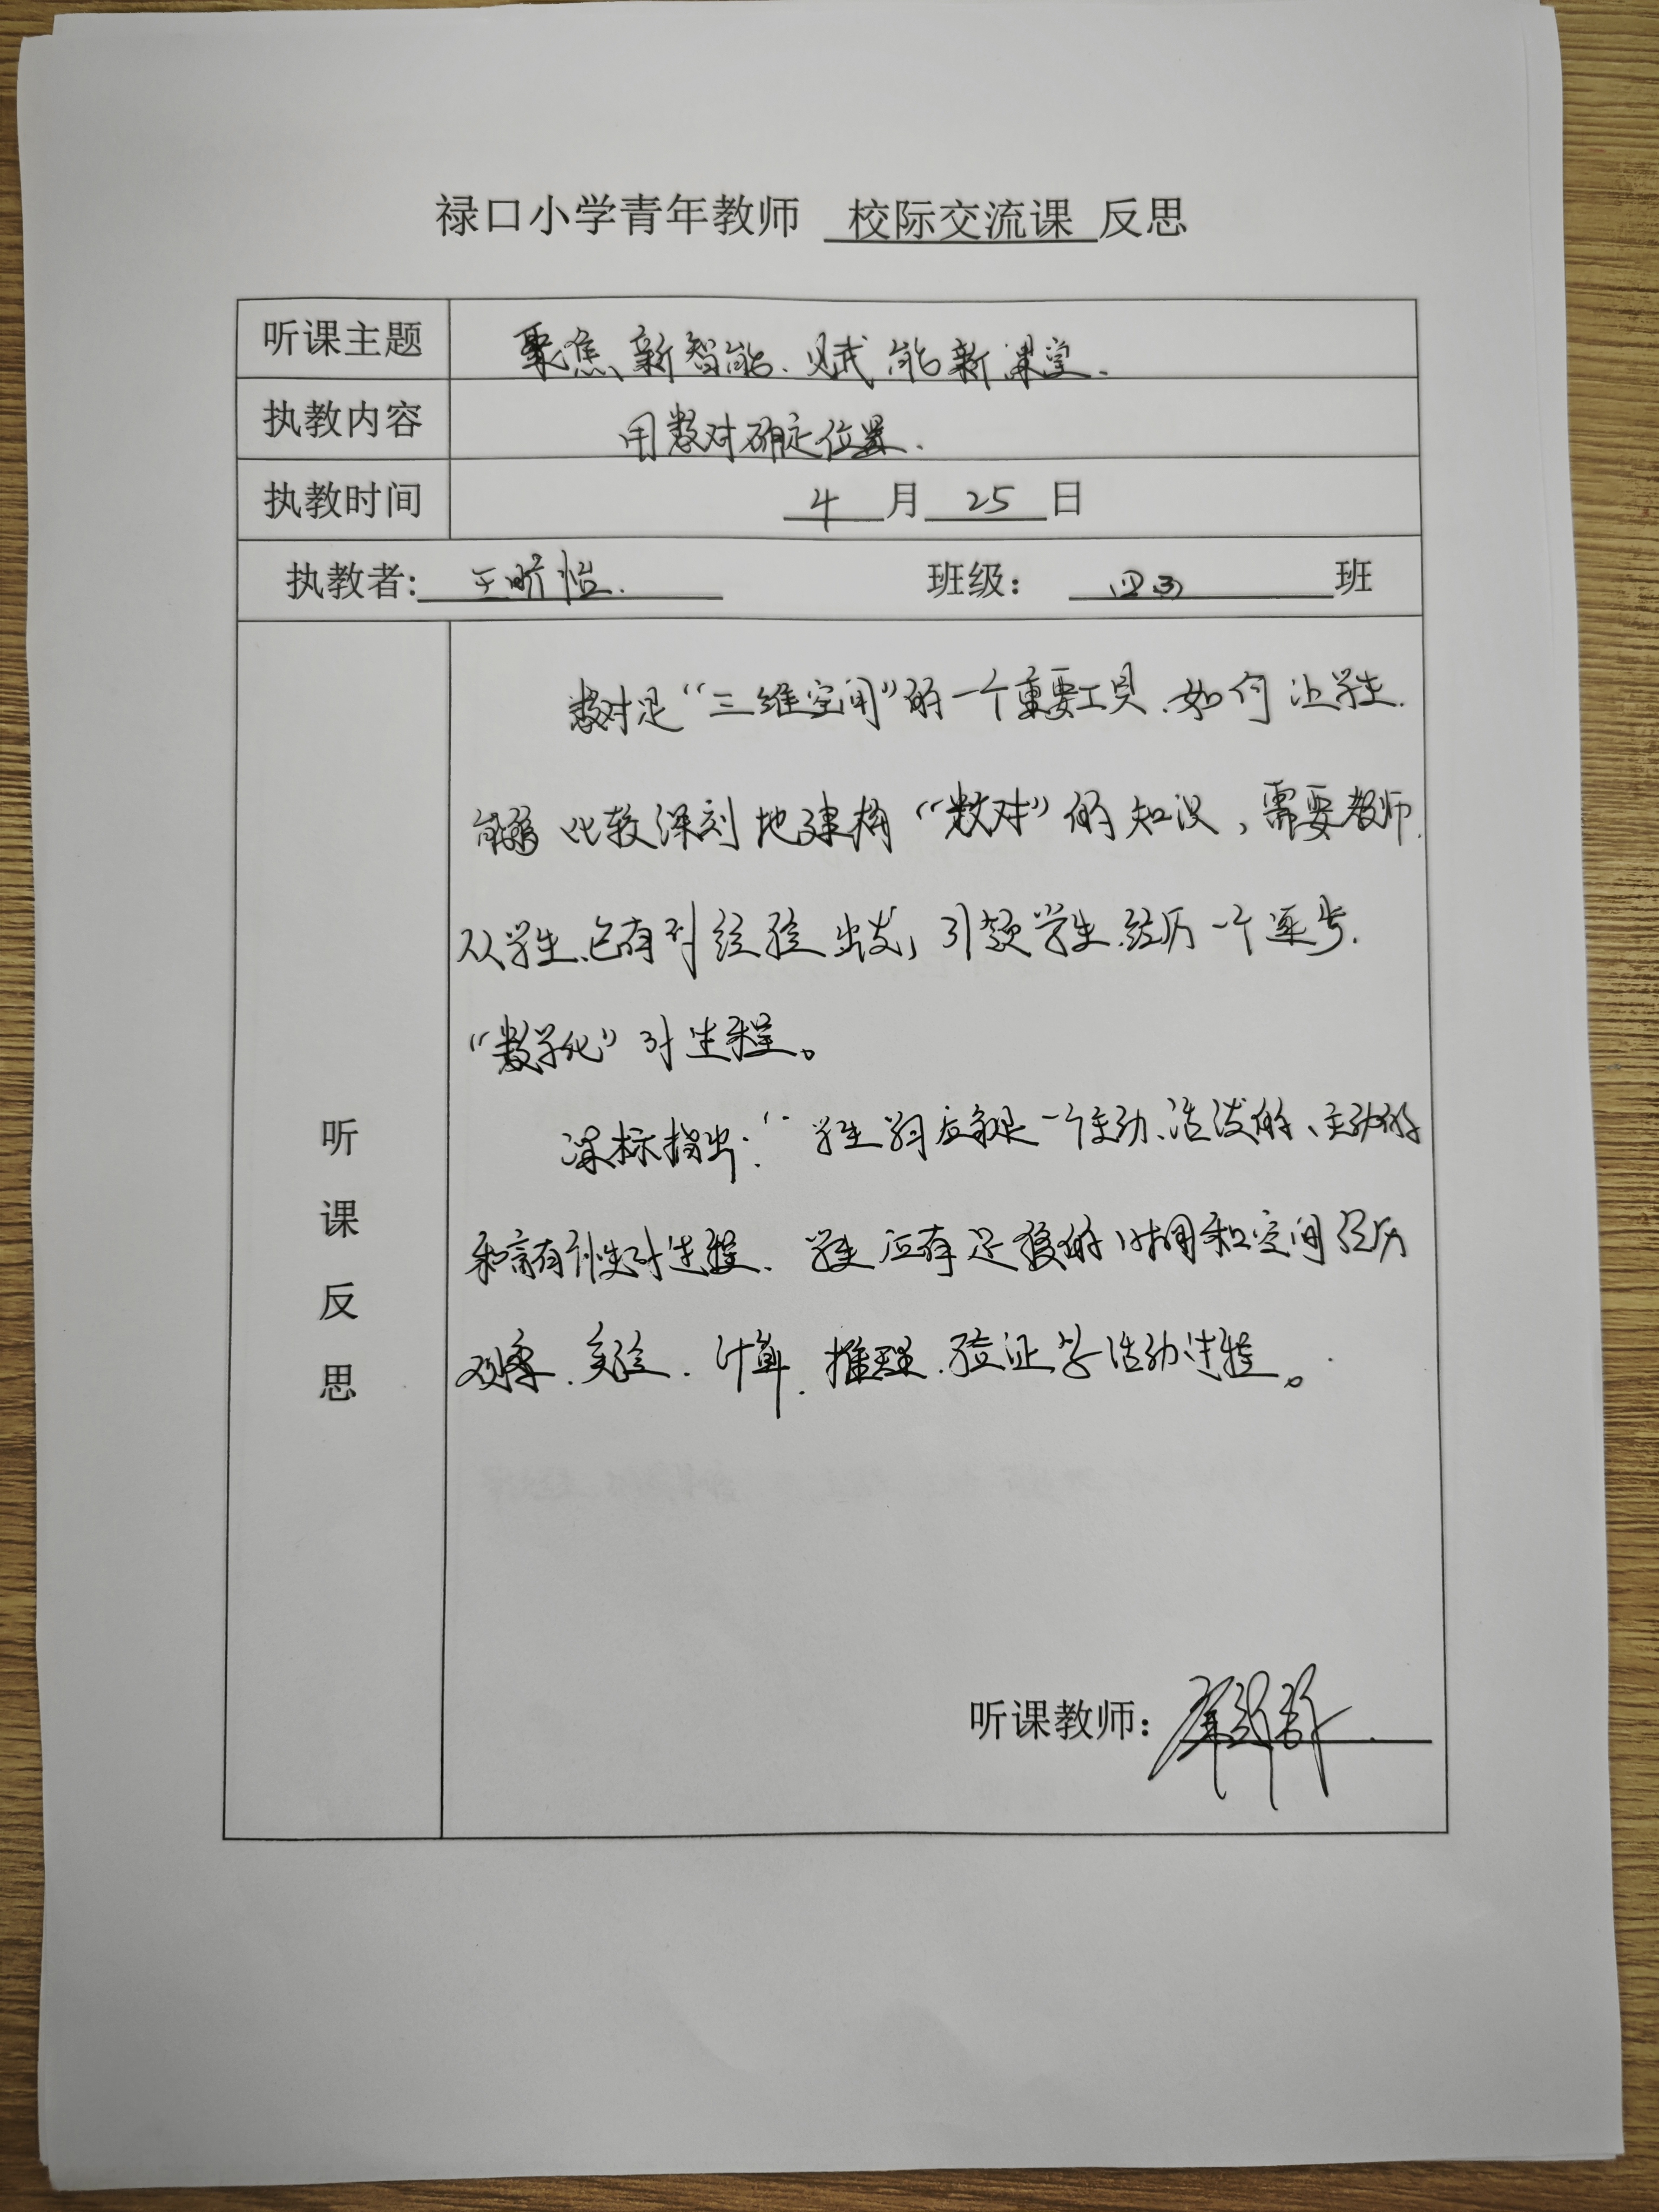 禄口小学青年教师 校际交流课 反思
听课主题 聚焦新智能、赋能新课堂.
执教内容 用数对确定位置.
执教时间 4 月 25 日
执教者: 王昕怡. 班级: 四3) 班
数对是“三维空间”的一个重要工具.如何让学生.
能够比较深刻地建构“数对”的知识,需要教师.
从学生已有的经验出发,引领学生经历一个逐步.
“数学化”的过程。
课标指出:“学生学习应当是一个生动、活泼的、主动的
和富有个性的过程. 学生应有足够的时间和空间经历
观察.实验.计算.推理.验证等活动过程。
听课反思
听课教师: